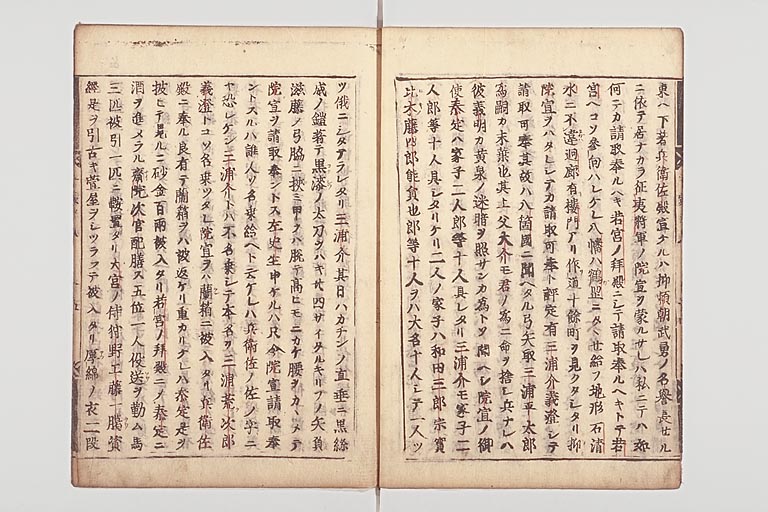 東ヘ下若兵衛佐殿宣ケルハ抑頼朝武勇ノ名誉長せル
ニ依テ居ナカラ征夷將軍ノ院宣ヲ蒙ルサレハ私ニテハ如
何テカ請取奉ルヘキ若宮ノ拜殿ニシテ請取奉ルヘキトテ若
宮ヘコソ參向ハレケレ八幡ハ鶴岳ニタヽせ給フ地形石清
水ニ不違廻廊有樓門アリ作道十餘町ヲ見クタシタリ抑
院宣ヲハタレシテカ請取可奉ト評定有三浦介義澄シテ
請取可奉其故ハ八箇國ニ聞ヘタル弓矢取三浦平太郎
為嗣カ末葉也其上父大介モ君ノ為ニ命ヲ捨シ兵ナレハ
彼義明カ黄泉ノ迷暗ヲ照サンカ為トソ聞ヘシ院宣ノ御
使泰定ハ家子二人郎等十人具シタリ三浦介モ家子二
人郎等十人具シタリケリ二人ノ家子ハ和田三郎宗實
比木藤四郎能員也郎等十人ヲハ大名十人シテ一人ツ
ツ俄ニシタテラレタリ三浦介其日ハカチンノ直垂ニ黒絲
威ノ鎧着テ黒漆ノ太刀ヲハキ廿四サイタルキリフノ矢負
滋藤ノ弓脇ニ挾ミ甲ヲハ脱テ高ヒモニカケ腰ヲカヽメテ
院宣ヲ請取奉ントス左史生申ケルハ只今院宣請取奉
ントスルハ誰人ソ名乗給ヘト云ケレハ兵衛佐ノ佐ノ字ニ
ヤ恐レケン三浦介トハ不名乗シテ本名ヲ三浦荒次郎
義澄トコソ名乗ツタレ院宣ヲハ蘭箱ニ被入タリ兵衛佐
殿ニ奉ル良有テ蘭箱ヲハ被返ケリ重カリケレハ泰定是ヲ
披ヒテ見ルニ砂金百兩被入タリ若宮ノ拜殿ニノ泰定ニ
酒ヲ進メラル齋院次官配膳ス五位一人役送ヲ勤ム馬
三匹被引一匹ニ鞍置タリ大宮ノ侍狩野工藤一臈資
經是ヲ引古キ萱屋ヲシツラフテ被入タリ厚綿ノ衣二段